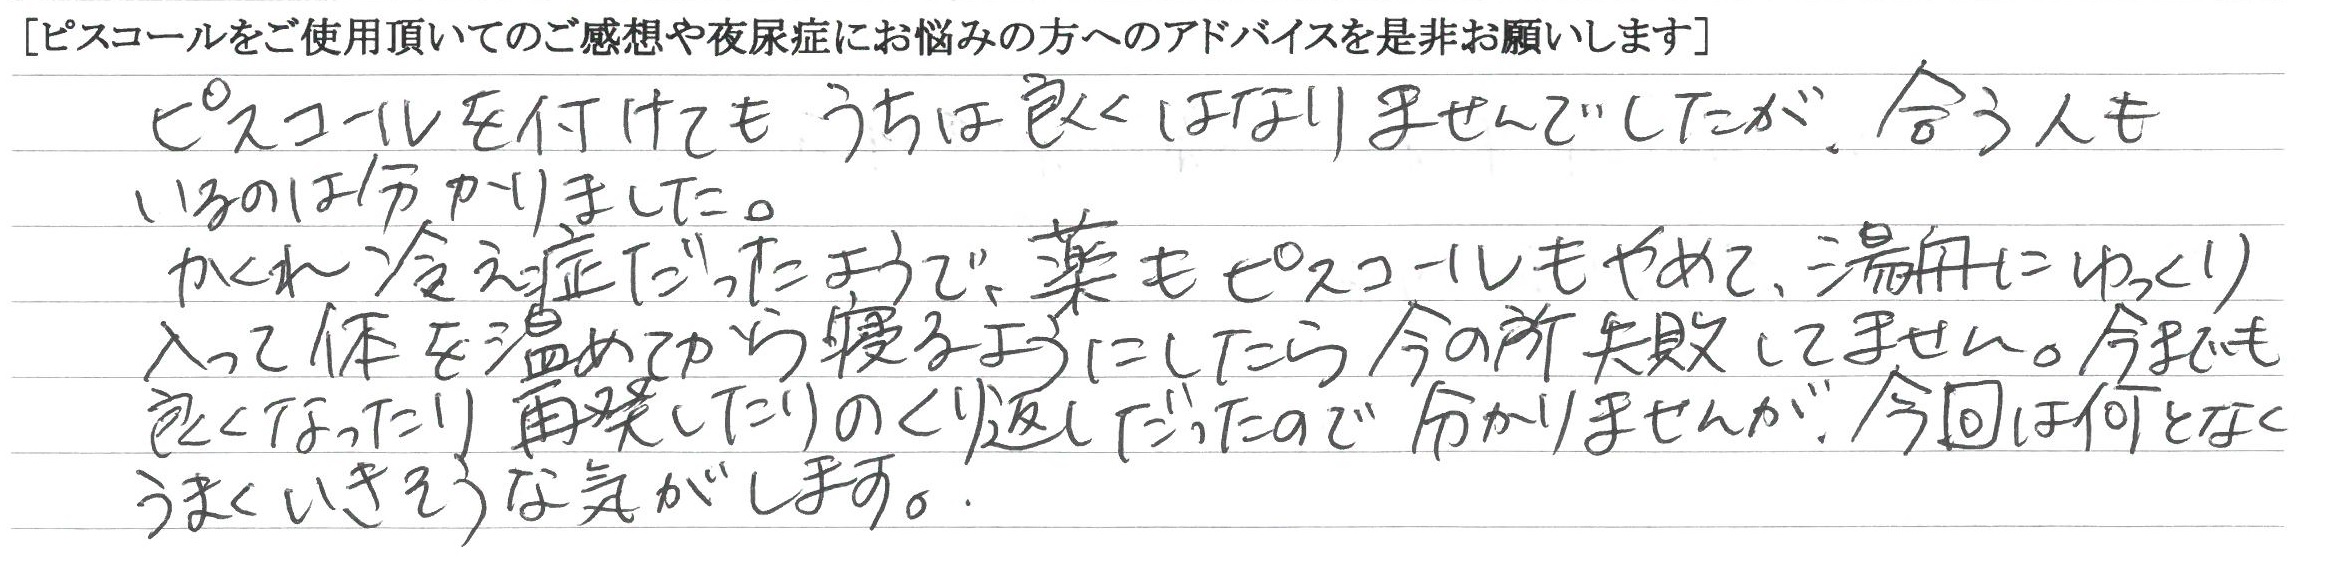 [ピスコールをご使用頂いてのご感想や夜尿症にお悩みの方へのアドバイスを是非お願いします]
ピスコールを付けてもうちは良くはなりませんでしたが、合う人も
いるのは分かりました。
かくれ冷え症だったようで、薬もピスコールもやめて、湯舟にゆっくり
入って体を温めてから寝るようにしたら今の所失敗してません。今までも
良くなったり再発したりのくり返しだったので分かりませんが、今回は何となく
うまくいきそうな気がします。